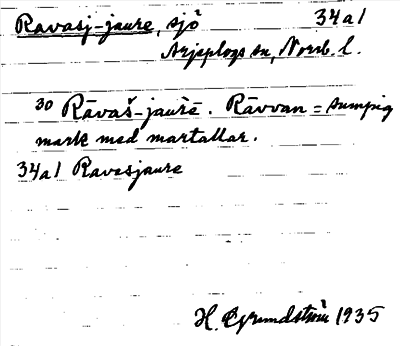 Ravasj-jaure, sjö 34a1
Arjeplogs sn, Norrb. l.
30 Rāvaš-jaurē. Rāvvan = sumpig
mark med martallar.
34a1 Ravasjaure
H. Grundström 1935